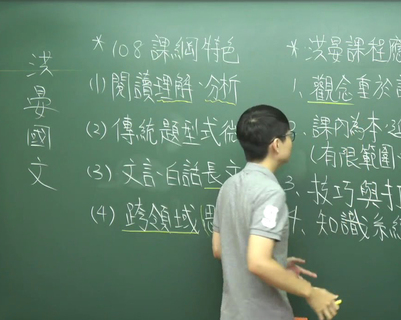 洪晏國文
*108課綱特色
(1) 閱讀理解、分析
(2) 傳統題型式微
(3) 文言、白話長文
(4) 跨領域
*洪晏課程應
1. 觀念重於
2. 課內為本、
(有限範圍
3. 技巧與打
4. 知識系統